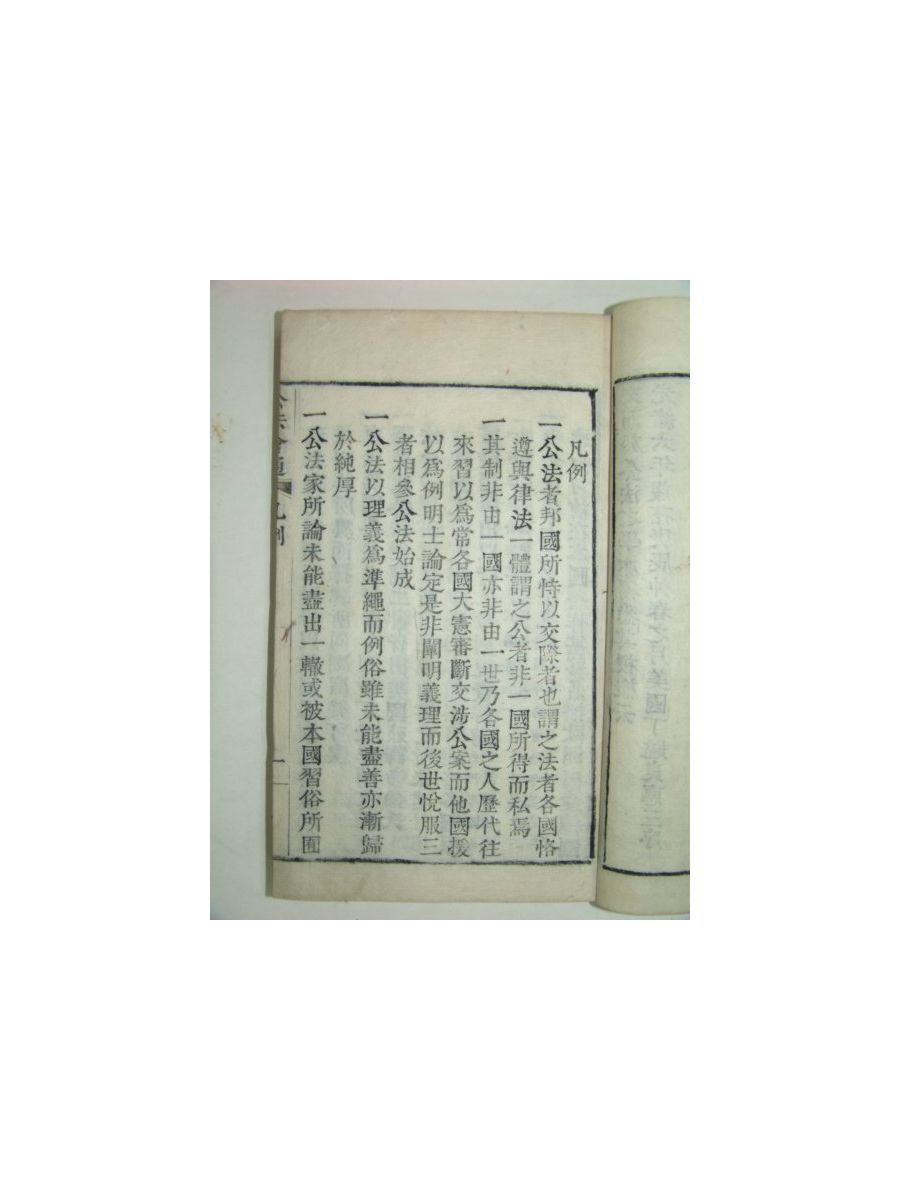 凡例
一公法者邦國所恃以交際者也謂之法者各國恪
遵與律法一體謂之公者非一國所得而私焉
一其制非由一國亦非由一世乃各國之人歷代往
來習以爲常各國大憲審斷交涉公案而他國援
以爲例明士論定是非闡明義理而後世悅服三
者相參公法始成
一公法以理義爲準繩而例俗雖未能盡善亦漸歸
於純厚
一公法家所論未能盡出一轍或被本國習俗所囿
公法會通
凡例
一